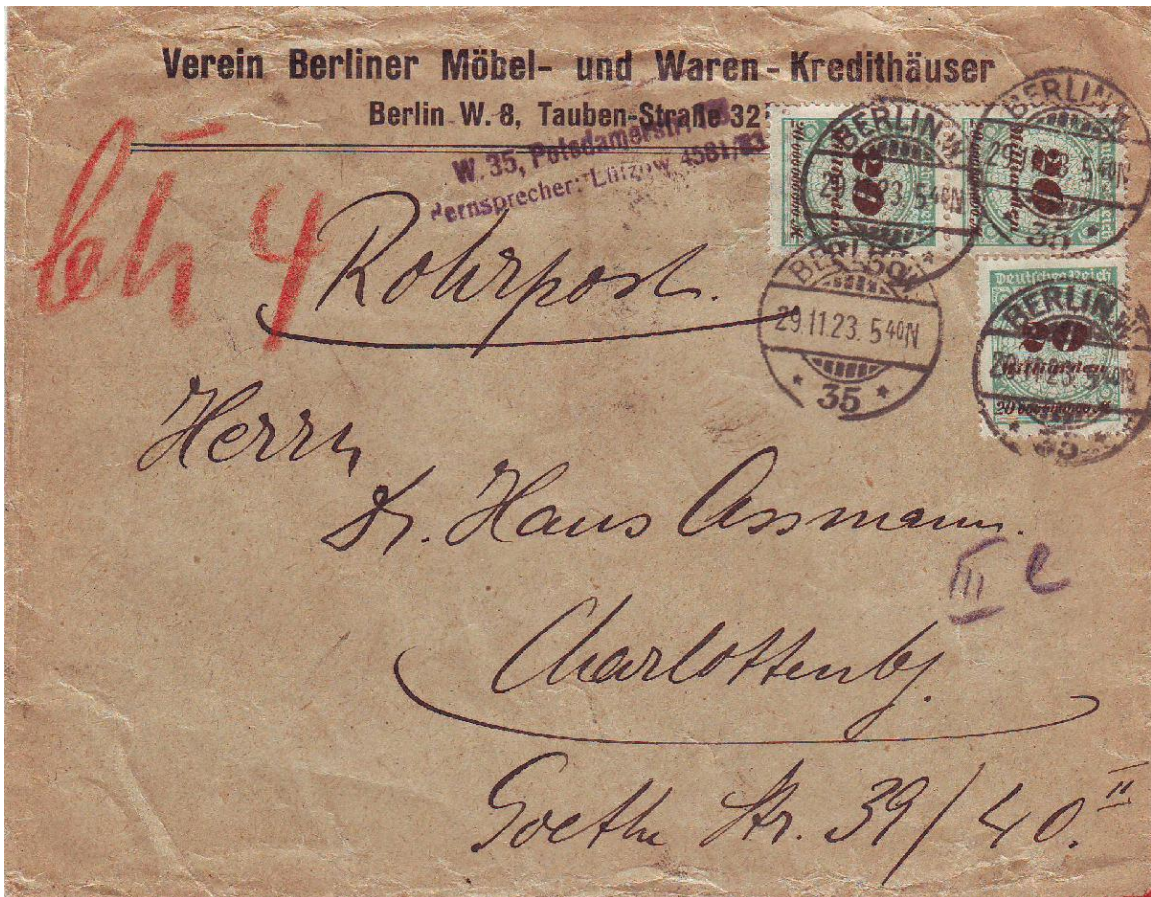 Verein Berliner Möbel- und Waren-Kredithäuser
Berlin W. 8, Tauben-Straße 32
W. 35, Potsdamerstr.
Fernsprecher: Lützow 4581/83
Ch 4
Rohrpost.
BERLIN.W.
29.11.23. 5 40N
* 35 *
BERLIN.W.
29.11.23. 5 40N
* 35 *
BERLIN.W.
29.11.23. 5 40N
* 35 *
Deutsches Reich
20
Milliarden
BERLIN.W.
29.11.23. 5 40N
* 35 *
20
Milliarden
20
Milliarden
Herrn
Dr. Hans Assmann.
III e
Charlottenbg.
Goethe Str. 39/40. II